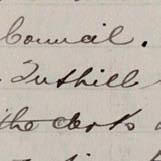 Council.
Tuthill
the clerk